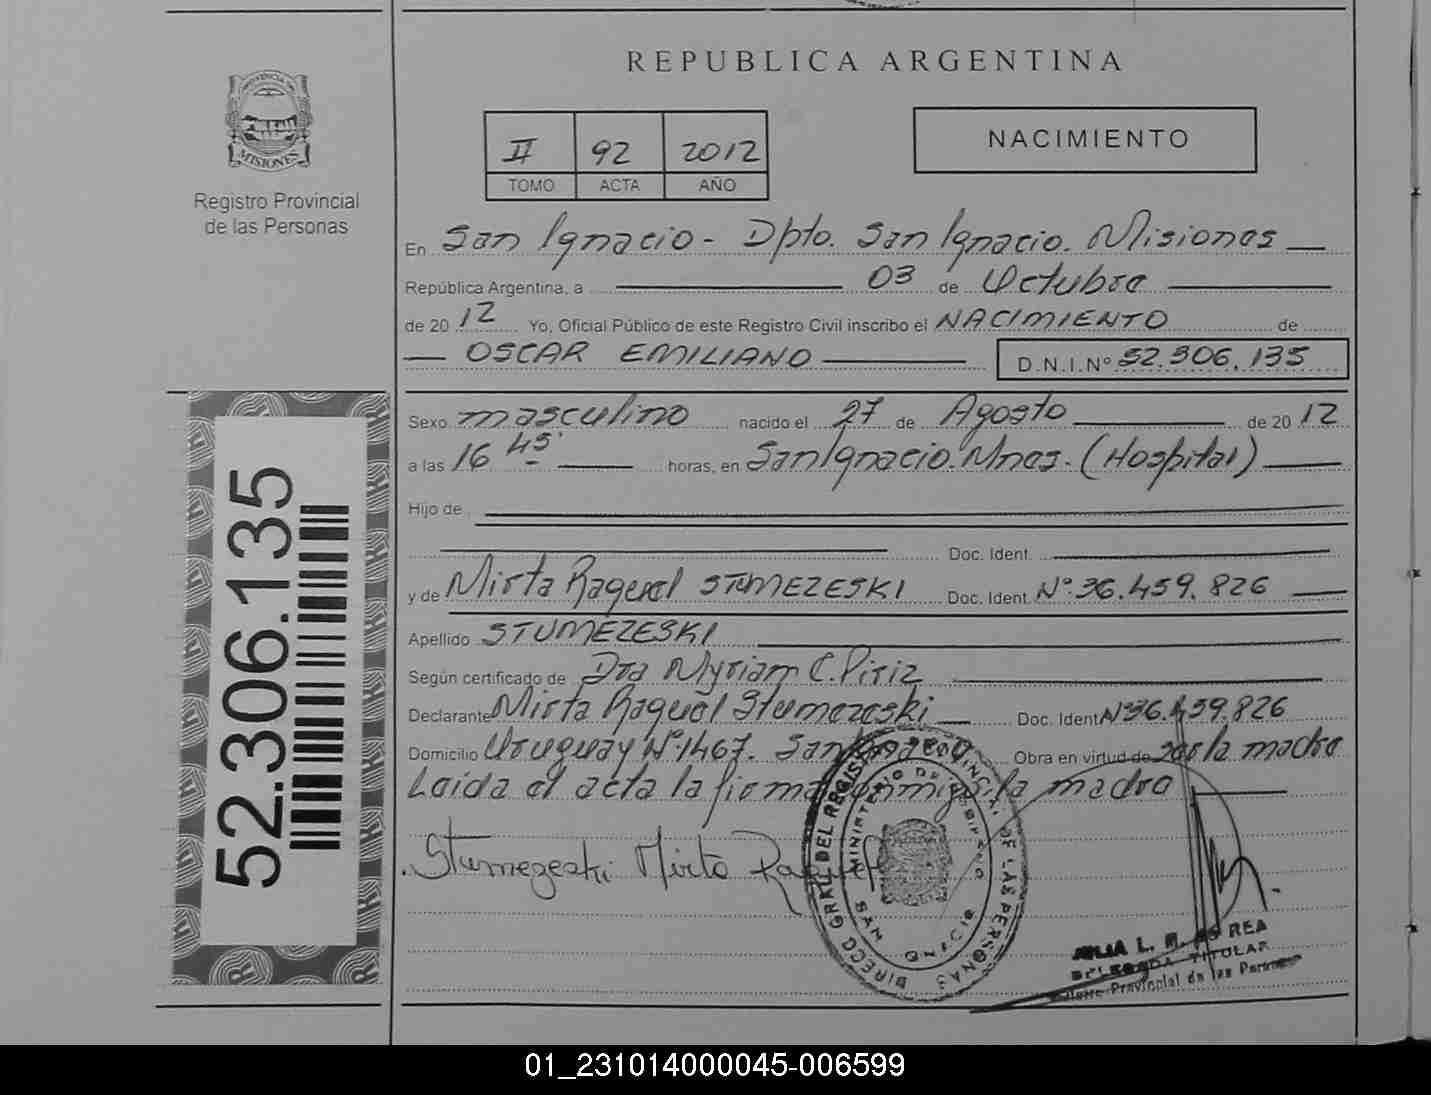 REPUBLICA ARGENTINA
PROVINCIA DE
MISIONES
Registro Provincial
de las Personas
II 92 2012
TOMO ACTA AÑO
NACIMIENTO
En San Ignacio - Dpto. San Ignacio. Misiones
República Argentina, a 03 de Octubre
de 20 12 Yo, Oficial Público de este Registro Civil inscribo el NACIMIENTO de
OSCAR EMILIANO D.N.I.Nº 52.306.135
Sexo masculino nacido el 27 de Agosto de 20 12
a las 16 45' horas, en San Ignacio. Mnes. (Hospital)
Hijo de
Doc. Ident.
y de Mirta Raquel STUMEZESKI Doc. Ident. Nº 36.459.826
Apellido STUMEZESKI
Según certificado de Dra Myriam C. Piriz
Declarante Mirta Raquel Stumezeski Doc. Ident Nº 36.459.826
Domicilio Uruguay Nº 1467. San Ignacio Obra en virtud de ser la madre
Leida el acta la firma conmigo la madre
Stumezeski Mirta Raquel
DIRECC GRAL DEL REGISTRO PROVINCIAL DE LAS PERSONAS
MINISTERIO DE GOBIERNO
SAN IGNACIO
JULIA L. REA
DELEGADA TITULAR
Provincial de las Personas
52.306.135
01_231014000045-006599